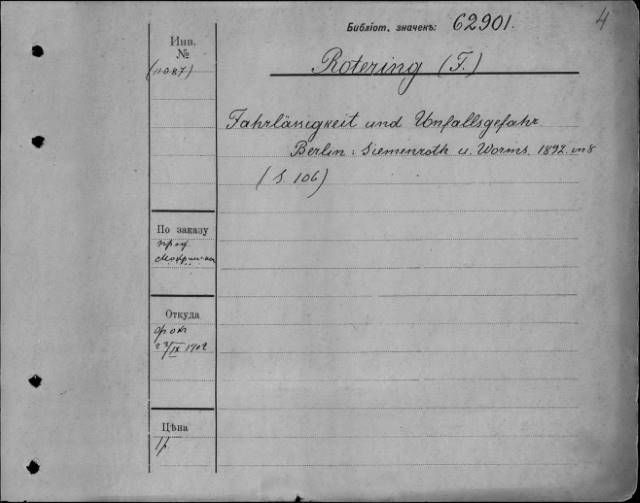 Библіот. значекъ: 62901.
4
Инв.
№
Rotering (F.)
Fahrläßigkeit und Unfallsgefahr
Berlin: Siemenroth u. Worms. 1892. in 8
(S. 106)
По заказу
проф.
Откуда
1902
Цѣна
1 р.